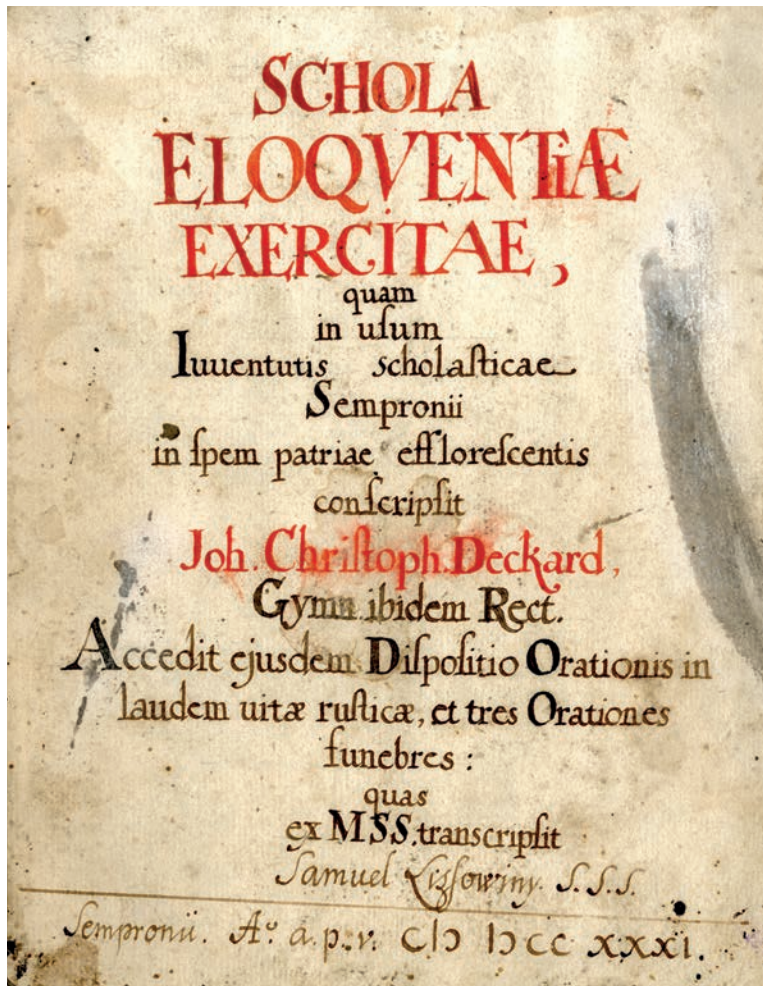 SCHOLA
ELOQVENTIÆ
EXERCITAE,
quam
in uſum
Iuuentutis scholaſticae
Sempronii
in ſpem patriae effloreſcentis
conſcripſit
Joh. Chriſtoph. Deckard,
Gymn. ibidem Rect.
Accedit ejusdem Diſpoſitio Orationis in
laudem uitæ ruſticæ, et tres Orationes
funebres:
quas
ex MSS. transcripſit
Samuel S.S.S.
Sempronii. Aº. a. p. v. CIↃ IↃCC XXXI.